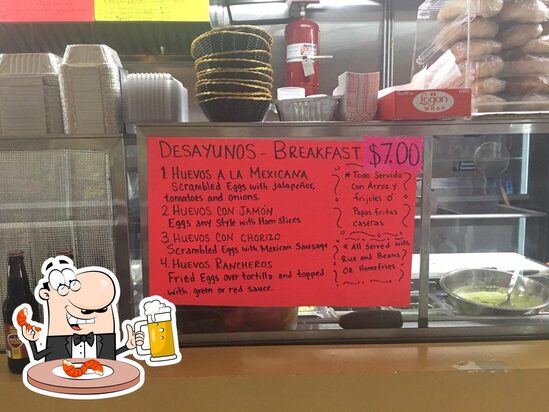 DESAYUNOS - BREAKFAST $7.00
1 HUEVOS A LA MEXICANA
Scrambled Eggs with jalapeños,
tomatoes and onions.
2 HUEVOS CON JAMÓN
Eggs any Style with Ham Slices
3 HUEVOS CON CHORIZO
Scrambled Eggs with Mexican Sausage
4. HUEVOS RANCHEROS
Fried Eggs over tortilla and topped
with green or red sauce.
* Todo Servido
Con Arroz y
frijoles ó
Papas fritas
caseras
* All Served with
Rice and Beans
OR Homefries
Logan
WRAP